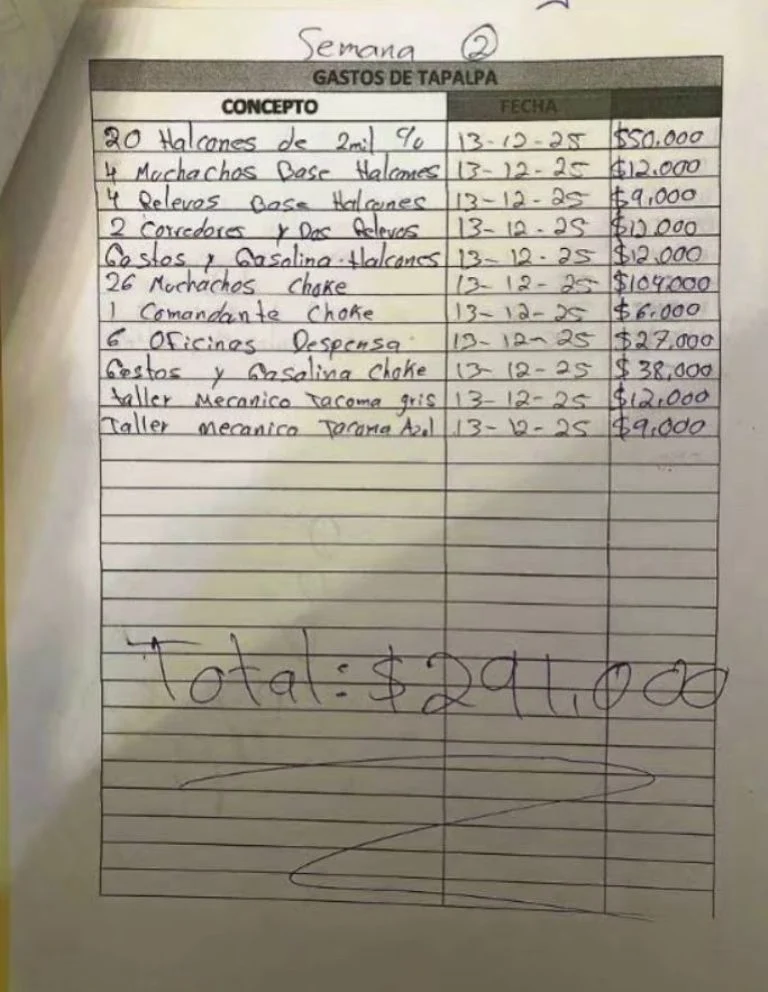 Semana ②
GASTOS DE TAPALPA
CONCEPTO FECHA
20 Halcones de 2mil % 13-12-25 $50.000
4 Muchachos Base Halcones 13-12-25 $12.000
4 Relevos Base Halcones 13-12-25 $9,000
2 Corredores y Dos Relevos 13-12-25 $12.000
Gastos y Gasolina Halcones 13-12-25 $12,000
26 Muchachos Choke 13-12-25 $104.000
1 Comandante Choke 13-12-25 $6.000
6 Oficinas Despensa 13-12-25 $27.000
Gastos y Gasolina Choke 13-12-25 $38,000
taller Mecanico Tacoma gris 13-12-25 $12,000
Taller mecanico Tacoma Azul 13-12-25 $9,000
Total: $291,000